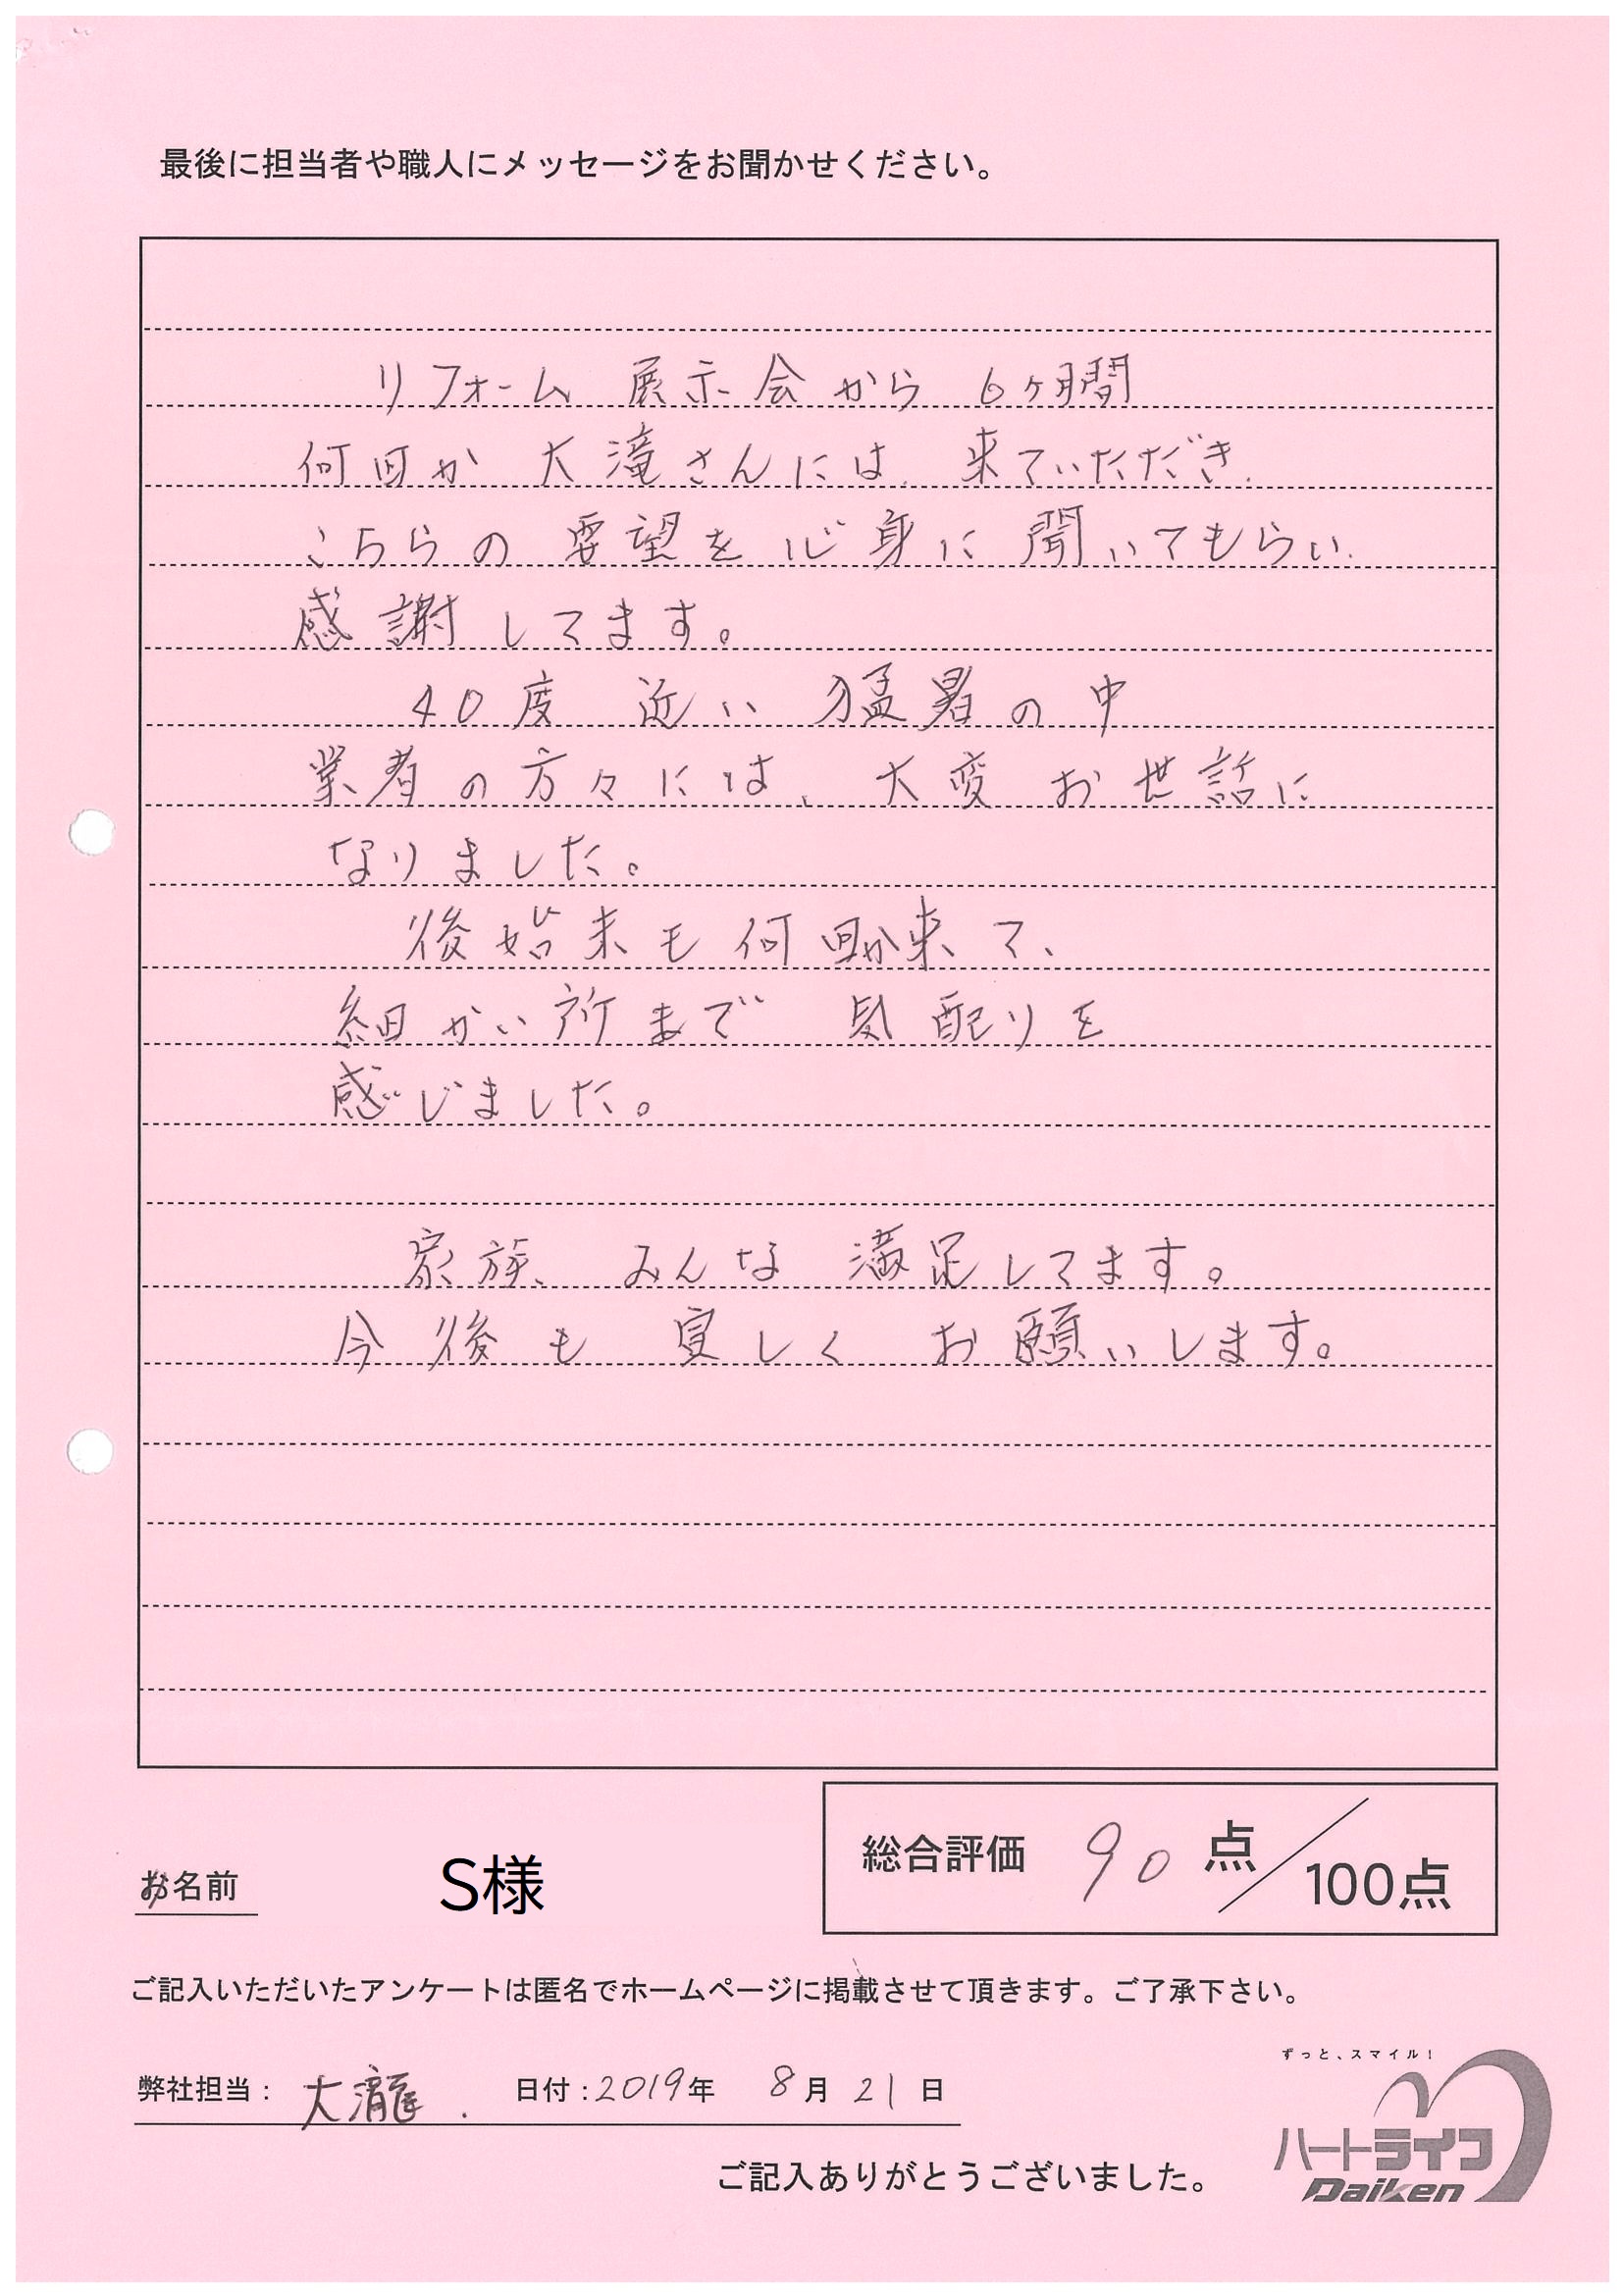 最後に担当者や職人にメッセージをお聞かせください。
リフォーム 展示会から 6ヶ月間
何回か 大滝さんには、来ていただき、
こちらの 要望を 心身に 聞いてもらい、
感謝してます。
40度 近い 猛暑の中
業者の方々には、大変お世話に
なりました。
後始末も何回か来て、
細かい所まで 気配りを
感じました。
家族、みんな 満足してます。
今後も 宜しく お願いします。
総合評価 90 点/100点
お名前 S様
ご記入いただいたアンケートは匿名でホームページに掲載させて頂きます。ご了承下さい。
弊社担当: 大瀧. 日付:2019年 8月 21日
ずっと、スマイル!
ハートライフ
Daiken
ご記入ありがとうございました。